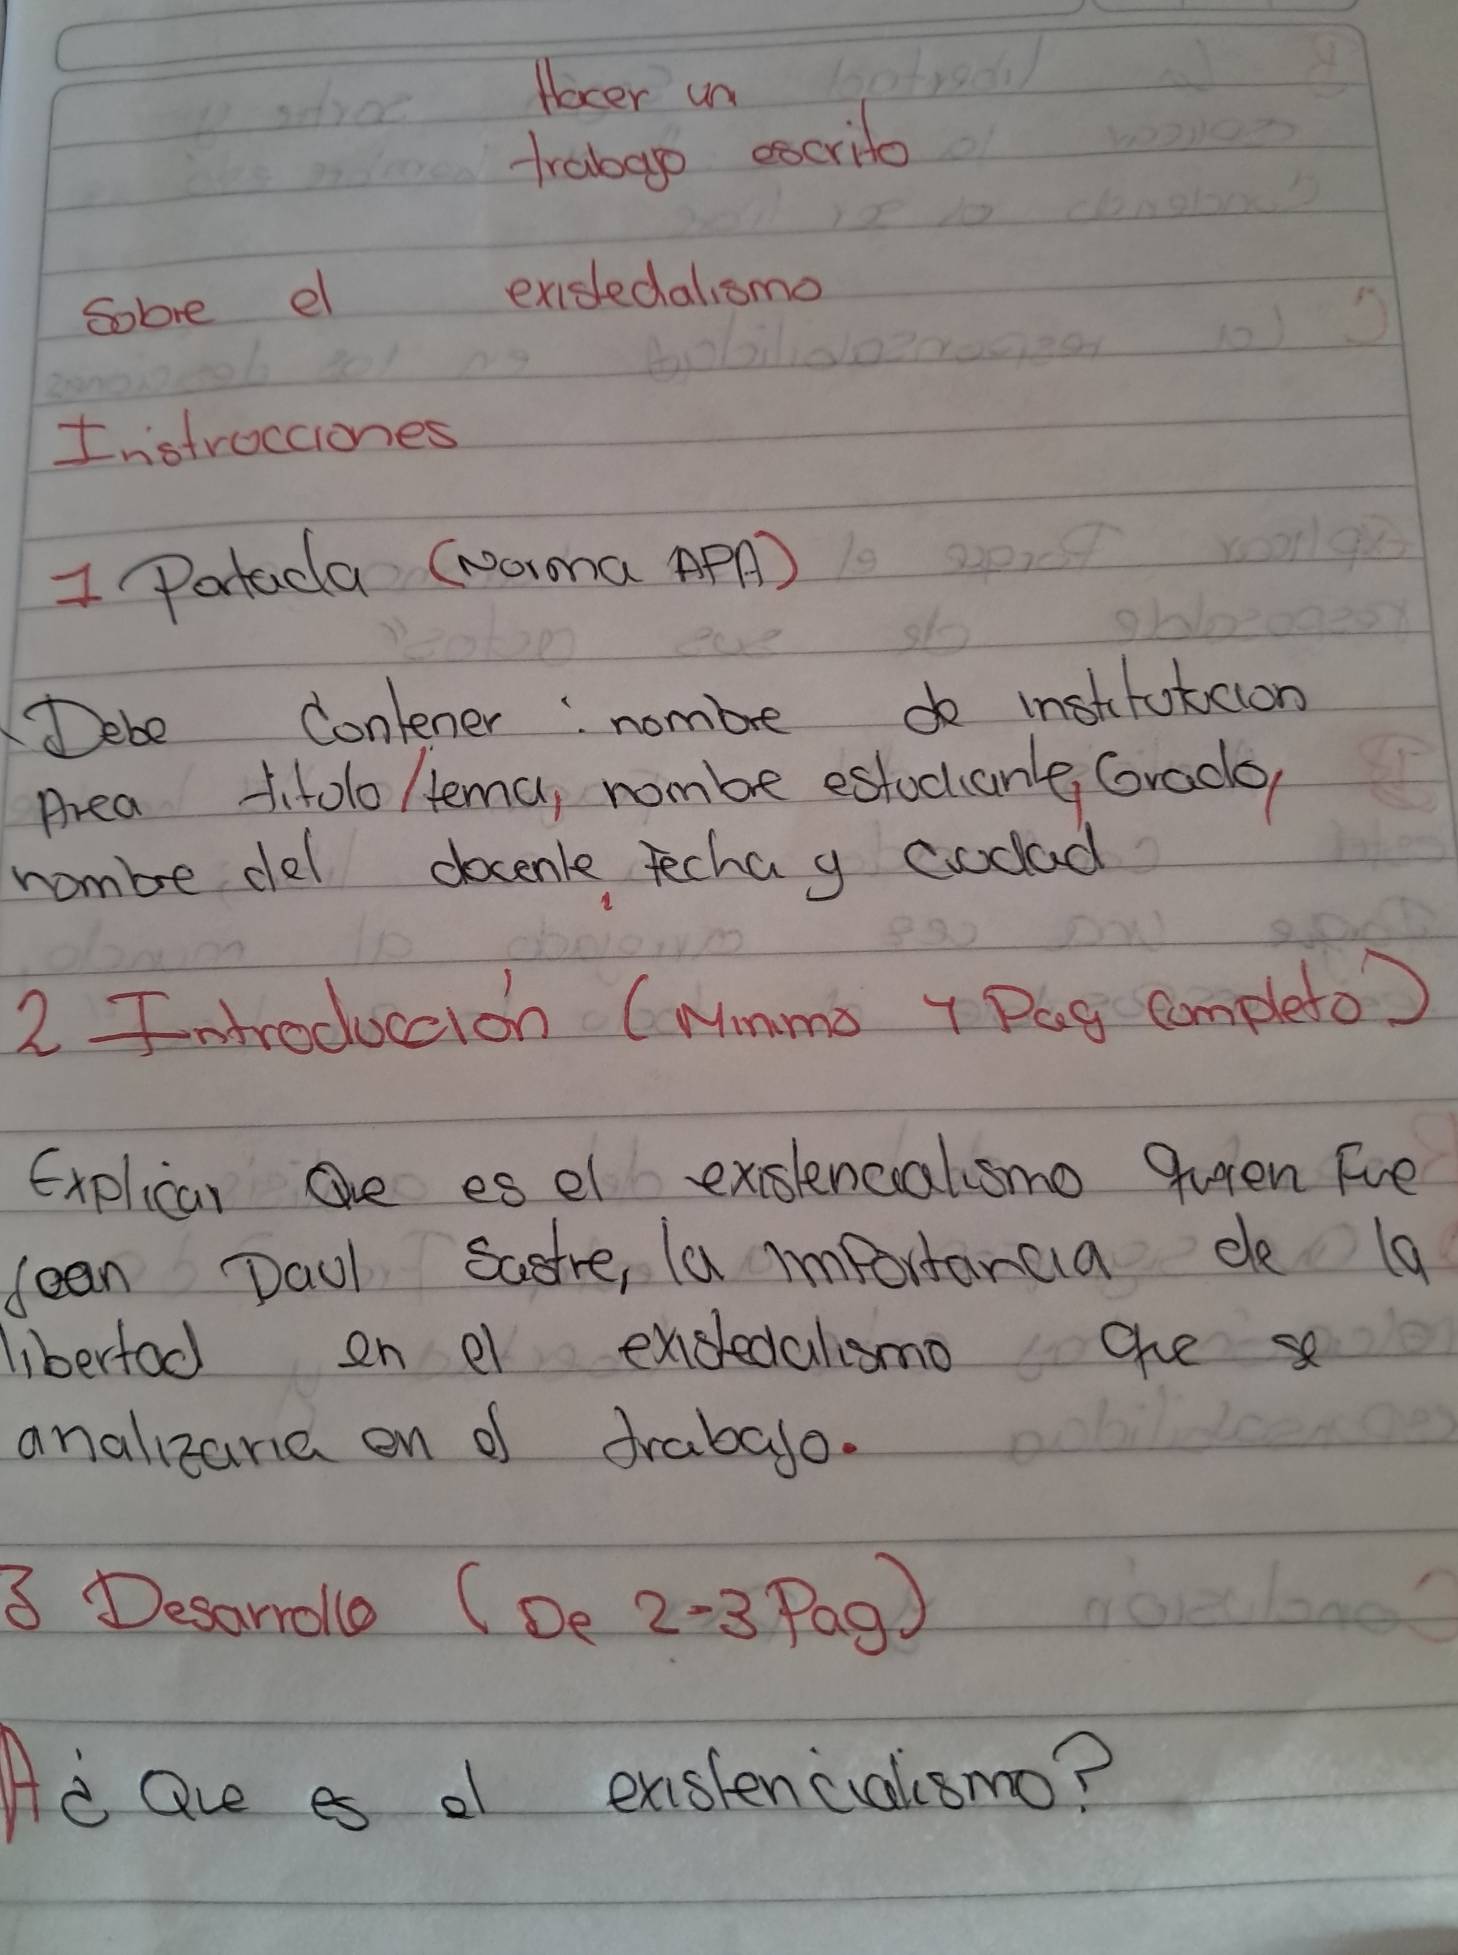 Hacer un
trabajo escrito
Sobre el existedalismo
Instrucciones
1 Portada (Norma APA)
Debe Contener : nombre de institutucion
Area titulo/tema, nombre estudiante, Grado,
nombre del docente, fecha y ciudad
2 Introducción (Minimo 1 Pag completo)
Explicar Que es el existencialismo quien Fue
Jean Paul Sastre, la importancia de la
libertad en el existedalismo que se
analizaria en el trabajo.
3 Desarrollo (De 2-3 Pag)
A ¿ Que es el existencialismo?